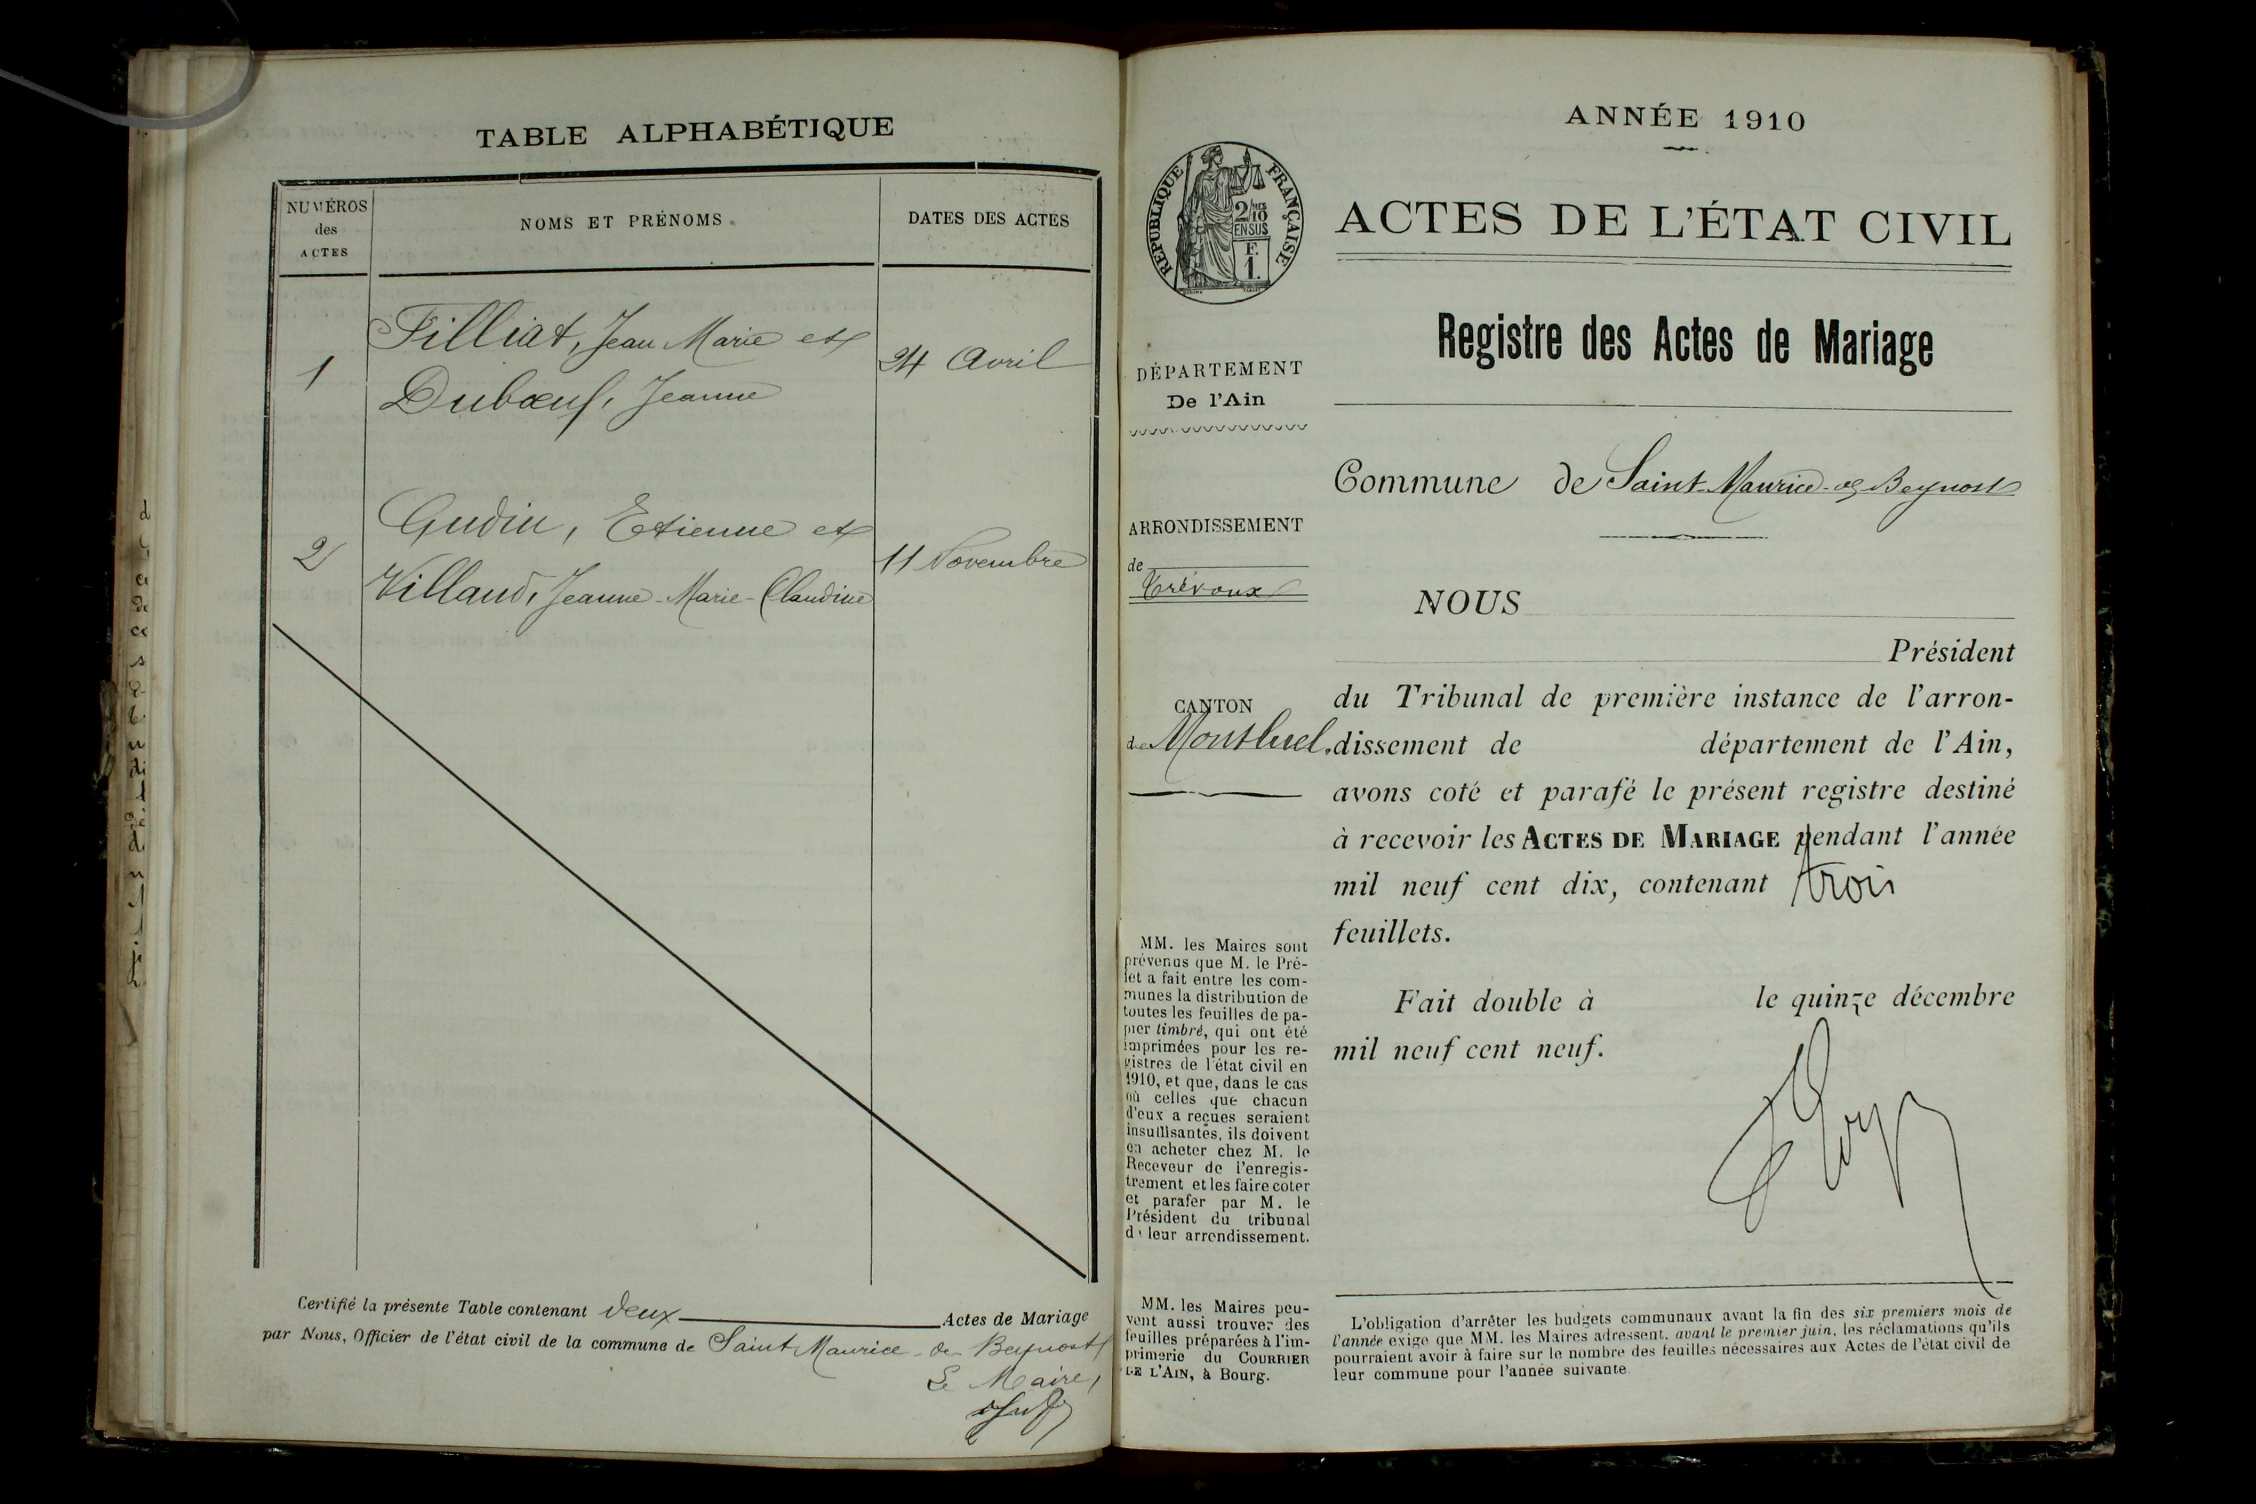 TABLE ALPHABÉTIQUE
NUMÉROS
des
ACTES
NOMS ET PRÉNOMS
DATES DES ACTES
1
Filliat, Jean Marie et
Dubœuf, Jeanne
24 Avril
2
Gudin, Etienne et
Villaud, Jeanne-Marie-Claudine
11 Novembre
Certifié la présente Table contenant deux Actes de Mariage
par Nous, Officier de l'état civil de la commune de Saint Maurice-de-Beynost
Le Maire,
ANNÉE 1910
RÉPUBLIQUE FRANÇAISE
2/10
EN SUS
F.
1.
ACTES DE L'ÉTAT CIVIL
Registre des Actes de Mariage
DÉPARTEMENT
De l'Ain
Commune de Saint-Maurice-de-Beynost
ARRONDISSEMENT
de
Trévoux
CANTON
de Montluel.
NOUS
Président
du Tribunal de première instance de l'arron-
dissement de département de l'Ain,
avons coté et parafé le présent registre destiné
à recevoir les ACTES DE MARIAGE pendant l'année
mil neuf cent dix, contenant trois
feuillets.
Fait double à le quinze décembre
mil neuf cent neuf.
MM. les Maires sont
prévenus que M. le Pré-
fet a fait entre les com-
munes la distribution de
toutes les feuilles de pa-
pier timbré, qui ont été
imprimées pour les re-
gistres de l'état civil en
1910, et que, dans le cas
où celles que chacun
d'eux a reçues seraient
insuffisantes, ils doivent
en acheter chez M. le
Receveur de l'enregis-
trement et les faire coter
et parafer par M. le
Président du tribunal
de leur arrondissement.
MM. les Maires peu-
vent aussi trouver des
feuilles préparées à l'im-
primerie du COURRIER
DE L'AIN, à Bourg.
L'obligation d'arrêter les budgets communaux avant la fin des six premiers mois de
l'année exige que MM. les Maires adressent, avant le premier juin, les réclamations qu'ils
pourraient avoir à faire sur le nombre des feuilles nécessaires aux Actes de l'état civil de
leur commune pour l'année suivante.